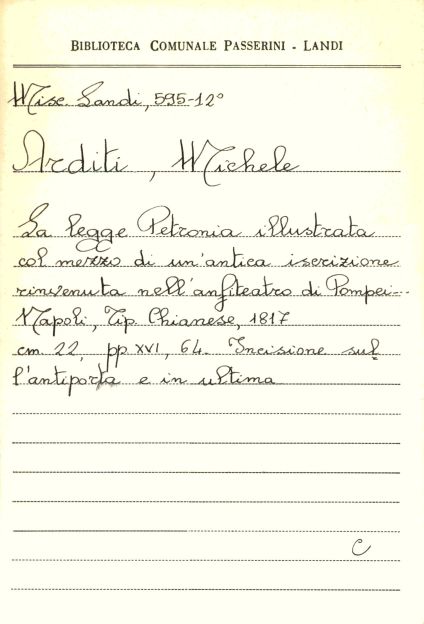 BIBLIOTECA COMUNALE PASSERINI - LANDI
Misc. Landi, 595-12°
Arditi, Michele
La legge Petronia illustrata
col mezzo di un'antica iscrizione
rinvenuta nell'anfiteatro di Pompei--
Napoli, Tip. Chianese, 1817
cm. 22, pp XVI, 64. Incisione sul
l'antiporta e in ultima
C